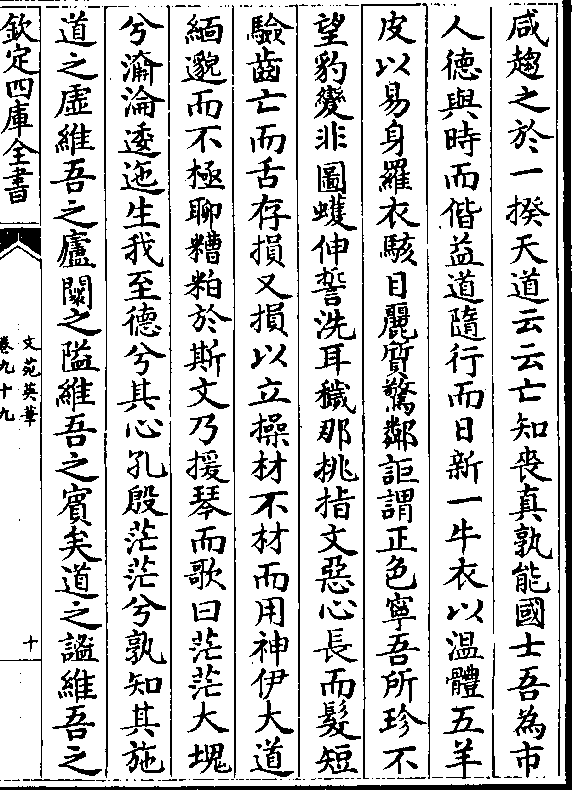 咸趨之於一揆天道云云亡知喪真孰能國士吾為市
人德與時而偕益道隨行而日新一牛衣以溫體五羊
皮以易身羅衣駭目麗質驚鄰詎謂正色寧吾所珍不
望豹變非圖蠖伸誓洗耳穢那挑指文惡心長而髮短
驗齒亡而舌存損又損以立操材不材而用神伊大道
緬邈而不極聊糟粕於斯文乃援琴而歌曰茫茫大塊
兮瀹淪逶迤生我至德兮其心孔殷茫茫兮孰知其施
道之虛維吾之廬闕之隘維吾之賓矣道之謐維吾之
欽定四庫全書
文苑英華
卷九十九
十